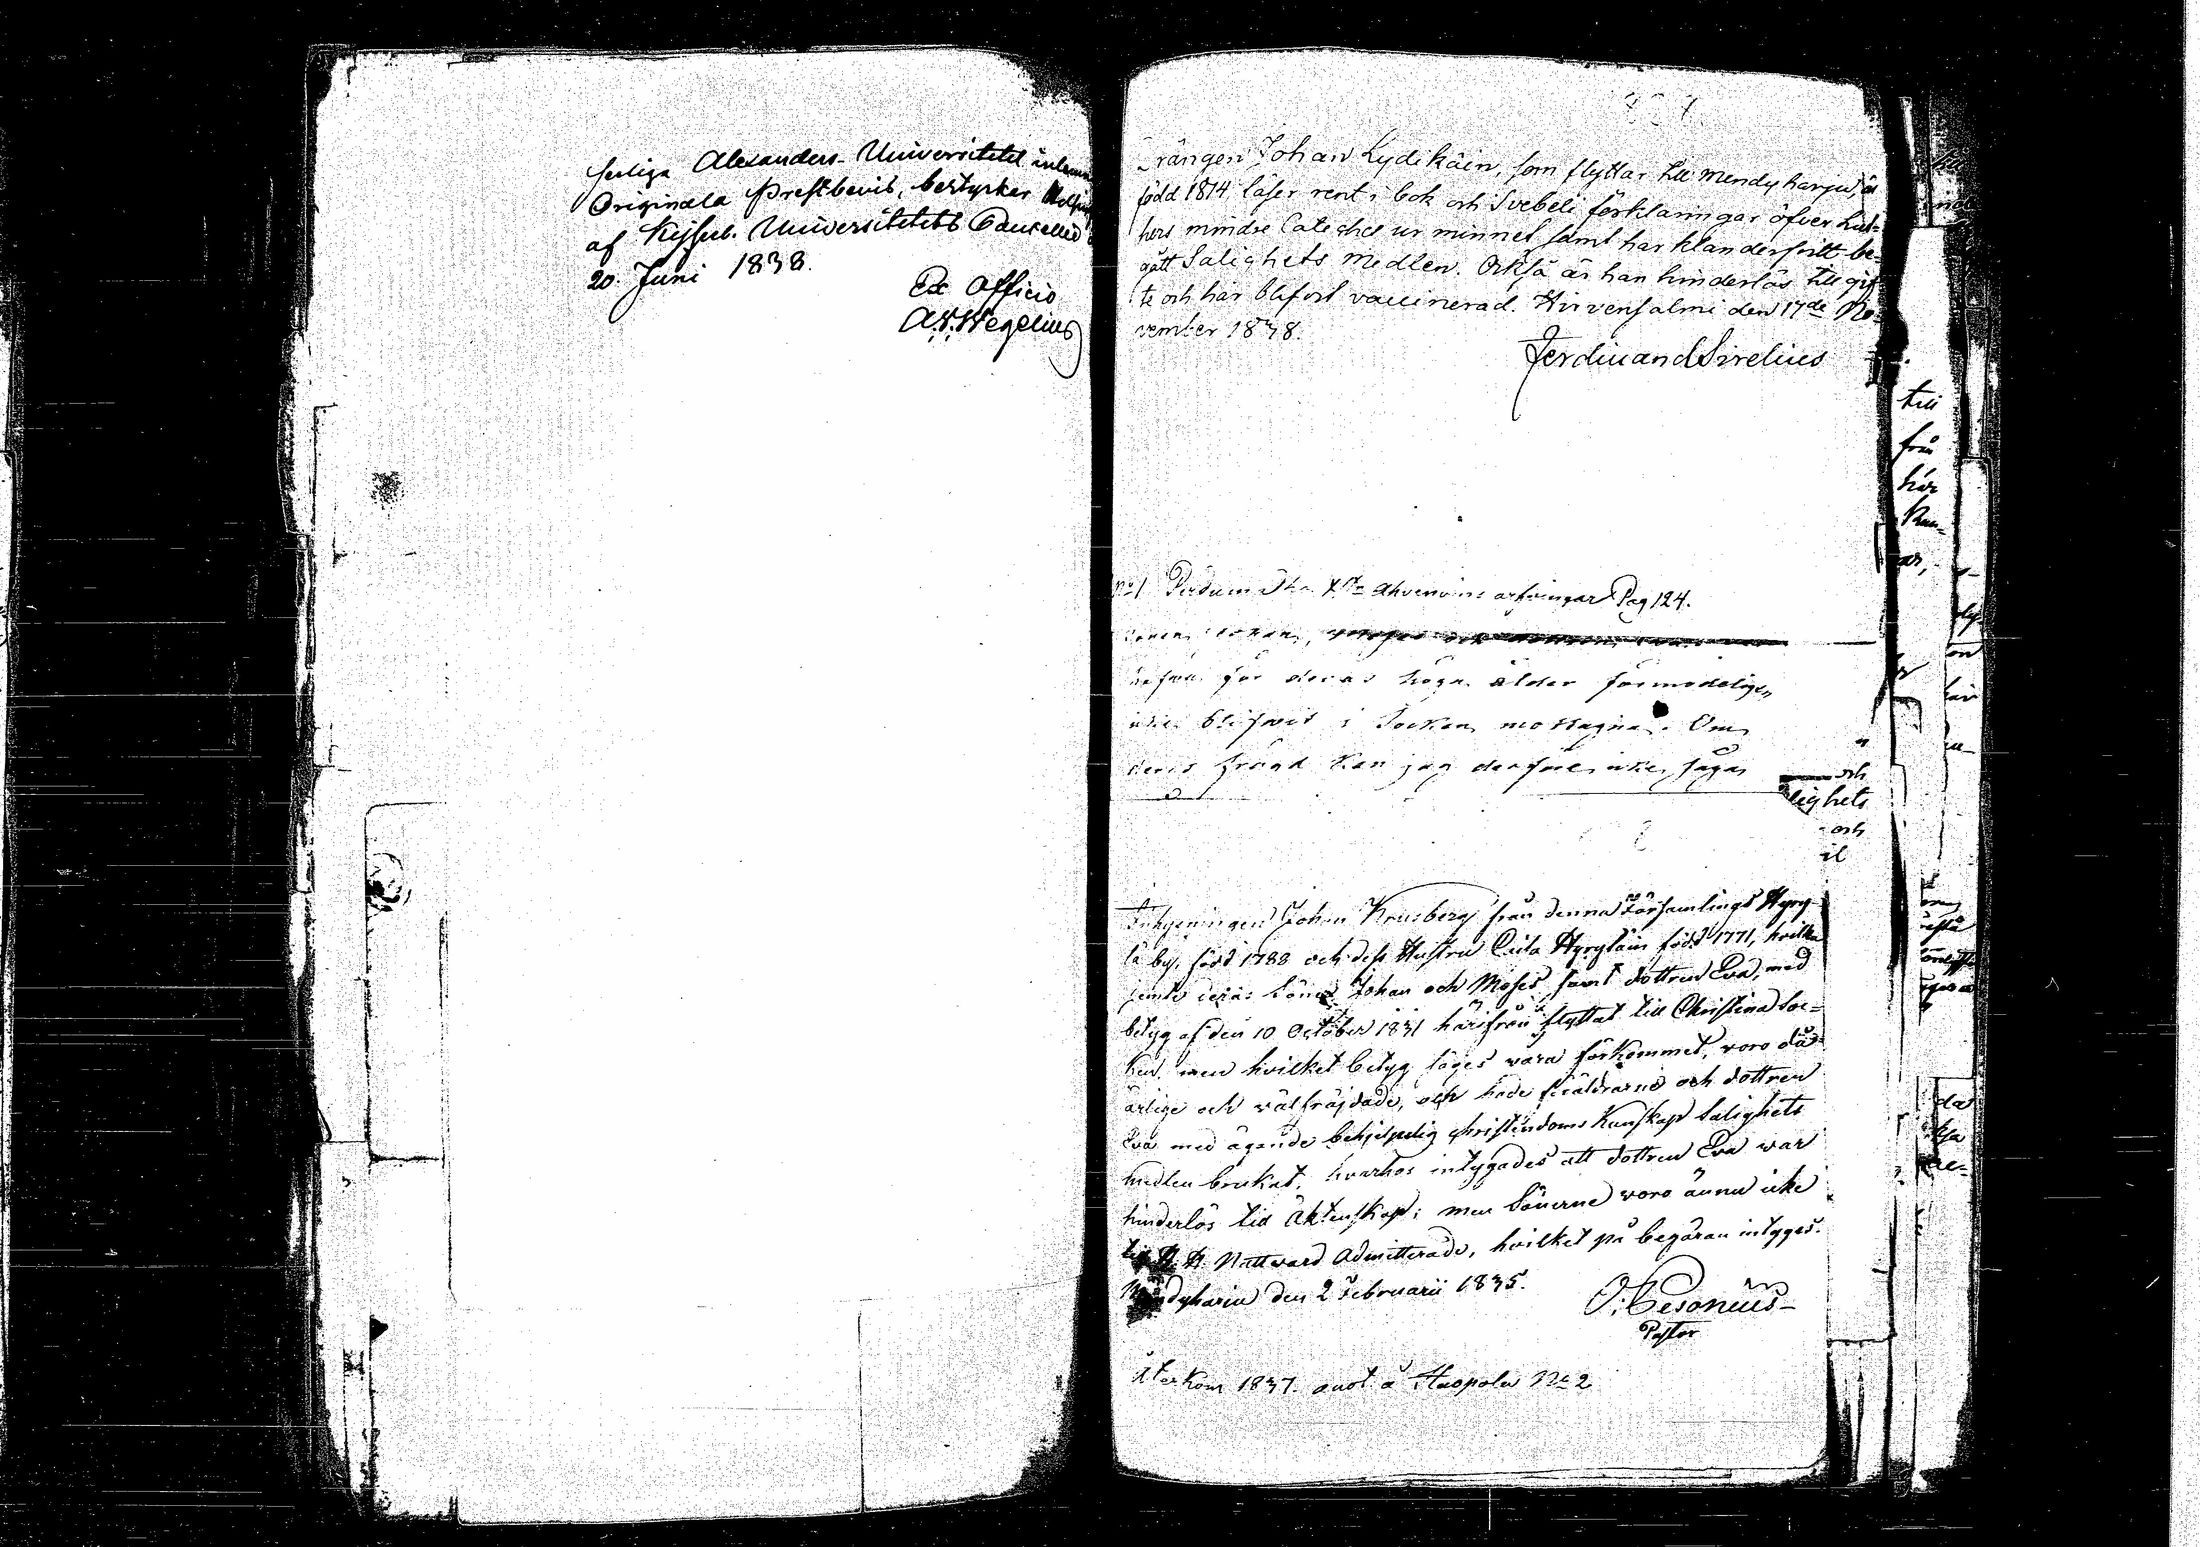 serliga Alexanders-Universitetet inlemn
Originala Prestbevis, bestyrker Helsing
af Kejserl. Universitetets Cancellie
20. Juni 1838.
Ex Officio
A. V. Wegelius
Drängen Johan Lydikäin, som flyttar till Mendyharju, är
född 1814, läser rent i bok och Svebelii förklaringar öfver Lut-
hers mindre Cateches ur minnet samt har klanderfritt be-
gått Salighets Medlen. Också är han hinderlös till gif
te och har blifvit vaccinerad. Hirvensalmi den 17de No-
vember 1838.
Ferdinand Sirelius
No 1 Ahvenains arfvingar Pag 124.
Johan,
för deras höga ålder förmodeligen
icke blifwit i Socken mottagna. Om
deras frägd kan jag derföre icke säga
och
lighets
och
til
Inhysingen Johan Krusberg från denna Församlings Hyry-
lä by, född 1788 och dess Hustru Ceila Hyryläin född 1771, hvilka
jemte deras Söner Johan och Moses samt dottren Eva, med
betyg af den 10 October 1831 härifrån flyttat till Christina Soc-
ken, men hvilket betyg säges vara förkommet, voro då
ärlige och välfräjdade, och hade föräldrarne och dottren
Eva med ägande behjelpelig christendoms Kunskap Salighets
medlen brukat, hvarhos intygades att dottren Eva war
hinderlös till Äktenskap; men Sönerne voro ännu icke
till H. H. Nattward Admitterade, hvilket på begäran intyges.
Mändyharju den 2 Februarii 1835.
O. Cesonius
Pastor
Återkom 1837. anot å No 2
till
från
här
Kun-
ar,